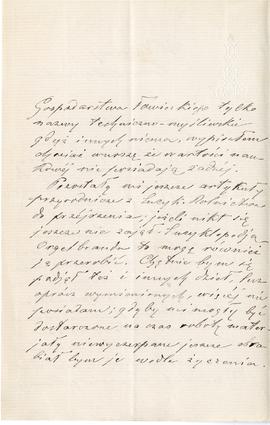 Gospodarstwa Łowieckiego tylko
nazwy techniczno-myśliwskie
gdyż innych niema, wypisałem
chociaż wyrazy że wartości nau-
kowej nie posiadają żadnej.
Pozostały mi jeszcze artykuły
przyrodnicze z Encykl. Rolnictwa
do przejrzenia; jeżeli nikt się
jeszcze nie zajął Encyklopedją
Orgelbranda to mogę również
ją przerobić. Chętnie bym się
podjął też i innych dzieł, lecz
oprócz wymienionych, więcej nie
posiadam; gdyby mi mogły być
dostarczone na czas robót mater-
jały niewyczerpane jeszcze obra-
białbym je wedle życzenia.